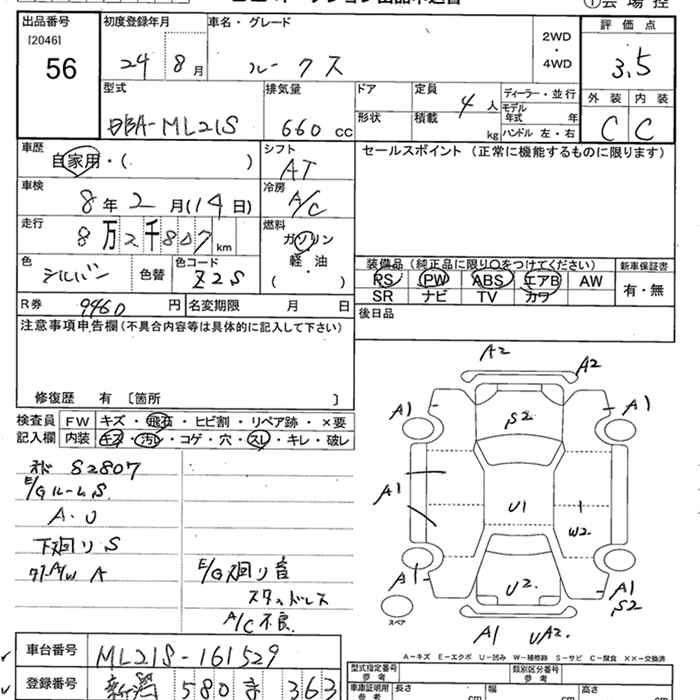 ①会場控
出品番号
[2046]
56
初度登録年月
24年 8月
車名・グレード
ルークス
2WD
・
4WD
評価点
3.5
外装 内装
C C
型式
DBA-ML21S
排気量
660 cc
ドア
形状
定員
4人
積載
kg
ディーラー・並行
モデル年式 年
ハンドル 左・右
車歴
自家用・( )
シフト
AT
セールスポイント (正常に機能するものに限ります)
車検
8年2月(14日)
冷房
A/C
走行
8万2千807km
燃料
ガソリン
軽・油
( )
色
シルバー
色替
色コード
Z2S
装備品(純正品に限り○をつけてください)
PS PW ABS エアB AW
SR ナビ TV カワ
新車保証書
有・無
R券 9460円
名変期限 月 日
後日品
注意事項申告欄(不具合内容等は具体的に記入して下さい)
修復歴 有 〔箇所 〕
検査員記入欄
FW キズ・飛石・ヒビ割・リペア跡・×要
内装 キズ・汚レ・コゲ・穴・スレ・キレ・破レ
S2807
E/Gルーム S
A・U
下廻り S
A/W A
E/G廻り音
スタッドレス
A/C不良
A2
A2
A1
A1
S2
A1
U1
1
W2
A1
U2
A1
S2
スペア
A1
UA2
A-キズ E-エクボ U-凹み W-補修跡 S-サビ C-腐食 ××-交換済
車台番号
ML21S-161529
登録番号
新潟 580 363
型式指定番号
参考
類別区分番号
車庫証明用
参考
長さ
幅
高さ